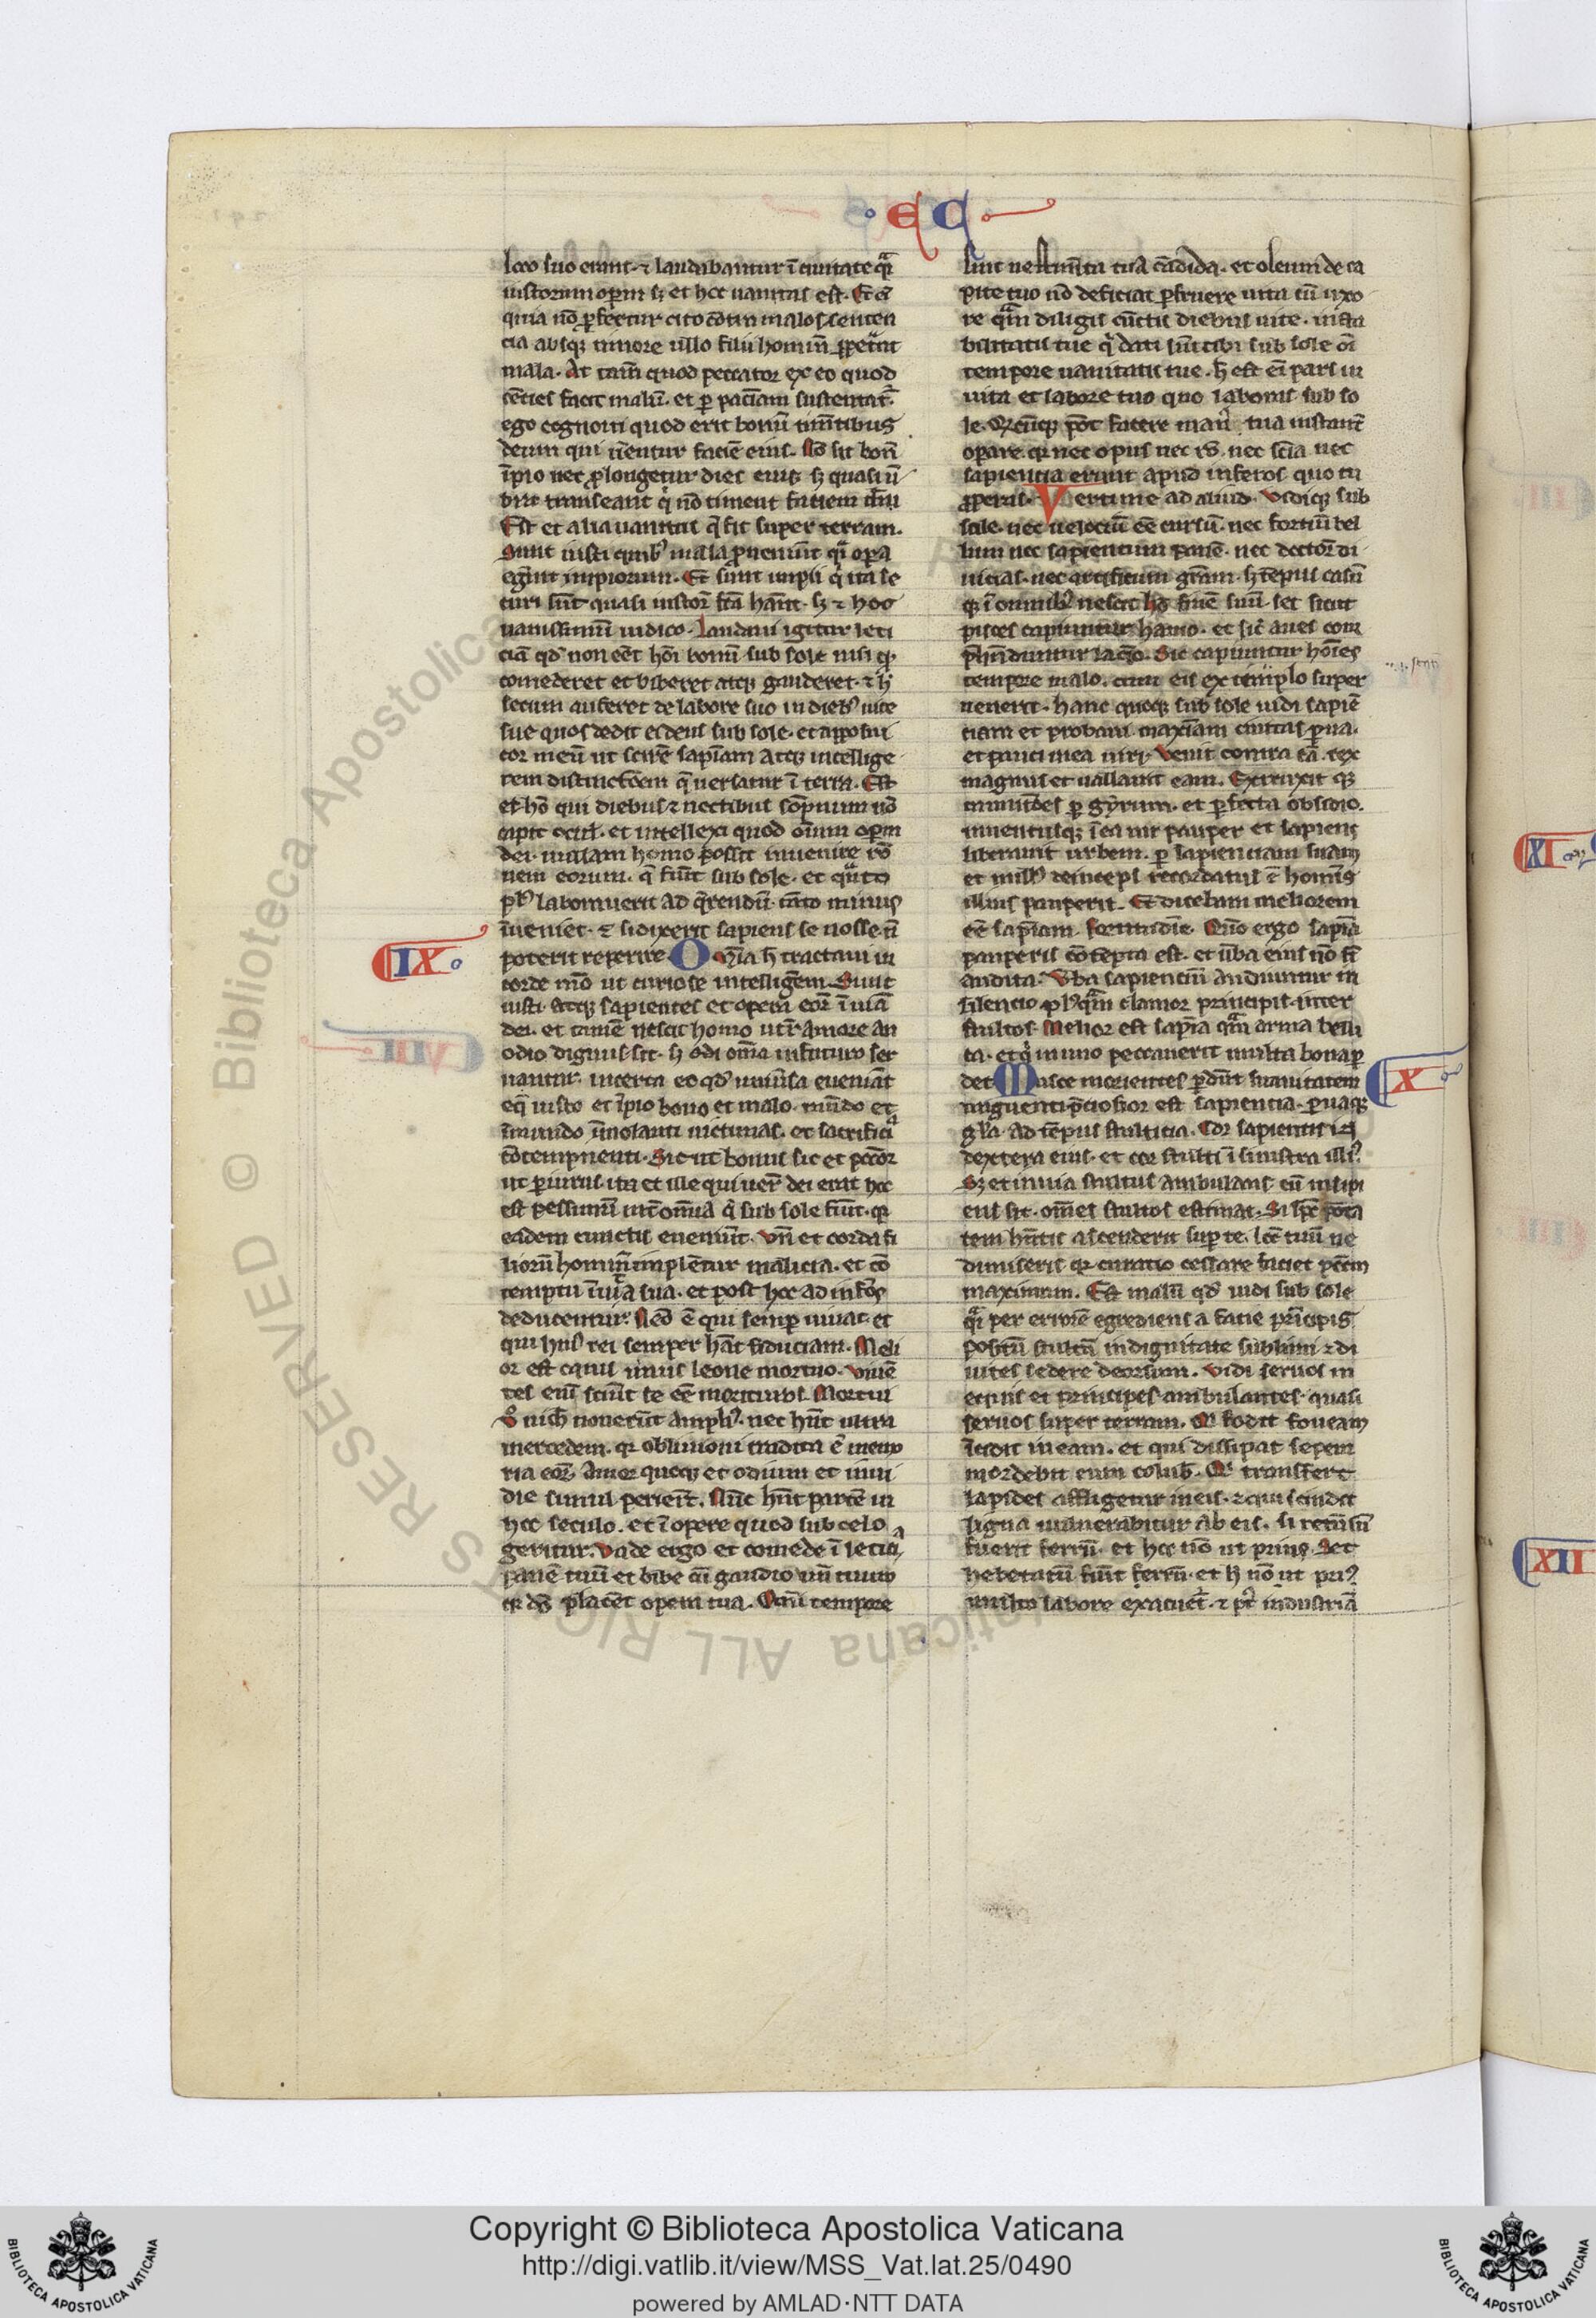 EC
loco suo erant ⁊ laudabantur ī ciuitate qͣi
iustorum operū sꝫ et hec uanitas est. Eteī
quia nō ꝓfertur cito cōtra malos senten
cia absqꝫ timore ullo filii hominū perpetrāt
mala. At tamē quod peccator ex eo quod
cēties facit malū. et per paciam sustentat̄
ego cognoui quod erit bonū timētibus
deum qui ūentur faciē eius. Nō sit bonū
īpio nec ꝓlongētur dies eius sꝫ quasi ū
bra transeant qi nō timent faciem dn̄i
Est et alia uanitas q̄ fit super terram.
Sunt iusti quibꝰ mala ꝓueniūt qͣi opera
egerint impiorum. Et sunt impii qi ita se
curi sūt quasi iustorū fcā habeāt. sꝫ ⁊ hoc
uanissimū iudico. Laudaui igitur leti
ciā qd̄ non eēt hoī bonū sub sole nisi qđ
comederet et biberet atqꝫ gauderet. ⁊ h̄
secum auferret de labore suo in diebꝰ uite
sue quos dedit ei deus sub sole. et apposui
cor meū ut scirē sapiam atqꝫ intellige
rem distinctōem q̄ uersatur ī terra. Est
et hō qui diebus ⁊ noctibus sōpnum nō
capit ocul. et intellexi quod oīum operū
dei. nullam homo possit inuenire rō
nem eorum. q̄ fiūt sub sole. et quāto
plꝰ laborauerit ad q̄rendū. tāto minus
īueniet. ⁊ si dixerit sapiens se nosse ñ
poterit reperire. Omīa h̄ tractaui in
corde mō ut curiose intelligēem. Sunt
iusti atqꝫ sapientes et opera eorū ī manu
dei. et tamē nescit homo utrū amore an
odio dignus sit. sꝫ oīa in futuro ser
uantur incerta eo qd̄ uniūsa eueniāt
eq̄ iusto et īpio bono et malo. mūdo et
īmundo īmolanti uictimas. et sacrificia
cōtempnenti. Sicut bonus sic et peccor
ut ꝑiurus. ita et ille qui uerū deierat hec
est pessimū int̄ omnia q̄ sub sole fiūt. qr
eadem cunctis eueniūt. Vn̄ et corda fi
liorū hominū implētur malicia. et cō
temptu ī uita sua. et post hec ad inferos
deducentur. Nēo ē qui semper uiuat et
qui huiꝰ rei semper habeāt fiduciam. Meli
or est canis uiuus leone mortuo. Viuē
tes eni sciūt se eē morituros. Mortui
ū nich nouerūt ampliꝰ. nec hn̄t ultra
mercedem. qr obliuioni tradita ē memo
ria eorū. Amor quoqꝫ et odium et inui
die simul perierūt. Nec hn̄t partē in
hoc seculo. et ī opere quod sub celo
geritur. Vade ergo et comede ī leticia
panē tuū et bibe cū gaudio uinū tuum
qr dō placēt opera tua. Omī tempore
sint uestimēta tua cādida. et oleum de ca
pite tuo nō deficiat ꝑfruere uita cū uxo
re quā diligis cūctis diebus uite. insta
bilitatis tue qi dati sūt tibi sub sole oī
tempore uanitatis tue. h̄ est eni pars in
uita et labore tuo quo laboras sub so
le. Qdcūqꝫ pōt facere manꝰ tua instant̄
operare. qr nec opus nec rō. nec scīa nec
sapiencia erunt apud inferos quo tu
properas. Verti me ad aliud. Vidiqꝫ sub
sole. nec uelociū eē cursū. nec fortiū bel
lum nec sapientum panē. nec doctorū di
uicias. nec artificum grām. sꝫ tēpus casū
qꝫ ī omnibꝰ. nescit hō finē suū. set sicut
pisces capiuntur hamo. et sic̄ aues com
p̄hēduntur laqeo. Sic capiuntur hoīes
tempore malo. cum eis extimplo super
uenerit. hanc quoqꝫ sub sole uidi sapiē
ciam et probaui maxiam ciuitas parua.
et pauci in ea uiri. Venit contra eā. rex
magnus et uallauit eam. Extruxit qꝫ
munitiōes per gyrum. et ꝑfecta obsidio.
inuentusqꝫ ī ea uir pauper et sapiens
liberauit urbem. per sapienciam suam
et nullꝰ deinceps recordatus ē hominis
illius pauperis. Et dicebam meliorem
eē sapiam fortitudīe. Quō ergo sapia
pauperis cōtēpta est. et ūba eius nō sūt
audita. Vba sapienciū audiuntur in
silencio plꝰquā clamor principis inter
stultos. Melior est sapia quā arma belli
ca. et qi in uno peccauerit multa bona per
det. Musce morientes ꝑdūt suauitatem
unguenti p̄ciosior est sapiencia. paruaqꝫ
glīa ad tēpus stulticia. Cor sapientis in
dextera eius. et cor stulti ī sinistra illiꝰ.
Sꝫ et in uia stultus ambulans cū insipi
ens sit. omnes stultos estimat. Si spc̄ pota
tem hn̄tis ascenderit super te. locū tuū ne
dimiseris qr curatio cessare faciet pccām
maximum. Est malū qd̄ uidi sub sole
qͣi per errorē egrediens a facie principis
positū stultū in dignitate sublimi ⁊ di
uites sedere deorsum. Vidi seruos in
equis et principes ambulantes quasi
seruos super terram. Qi fodit foueam
īcidit in eam. et qui dissipat sepem
mordebit eum coluber. Qi transfert
lapides affligetur in eis. ⁊ qui scindit
ligna uulnerabitur ab eis. si retūsū
fuerit ferrū. et hec nō ut prius. Set
hebetatū fuūt ferrū. et h̄ nō ut priꝰ
multo labore exacuet̄. ⁊ pt̄ industriā
IX
X
XI
XII
Copyright © Biblioteca Apostolica Vaticana
http://digi.vatlib.it/view/MSS_Vat.lat.25/0490
powered by AMLAD·NTT DATA
BIBLIOTECA APOSTOLICA VATICANA
BIBLIOTECA APOSTOLICA VATICANA
© Biblioteca Apostolica Vaticana ALL RIGHTS RESERVED